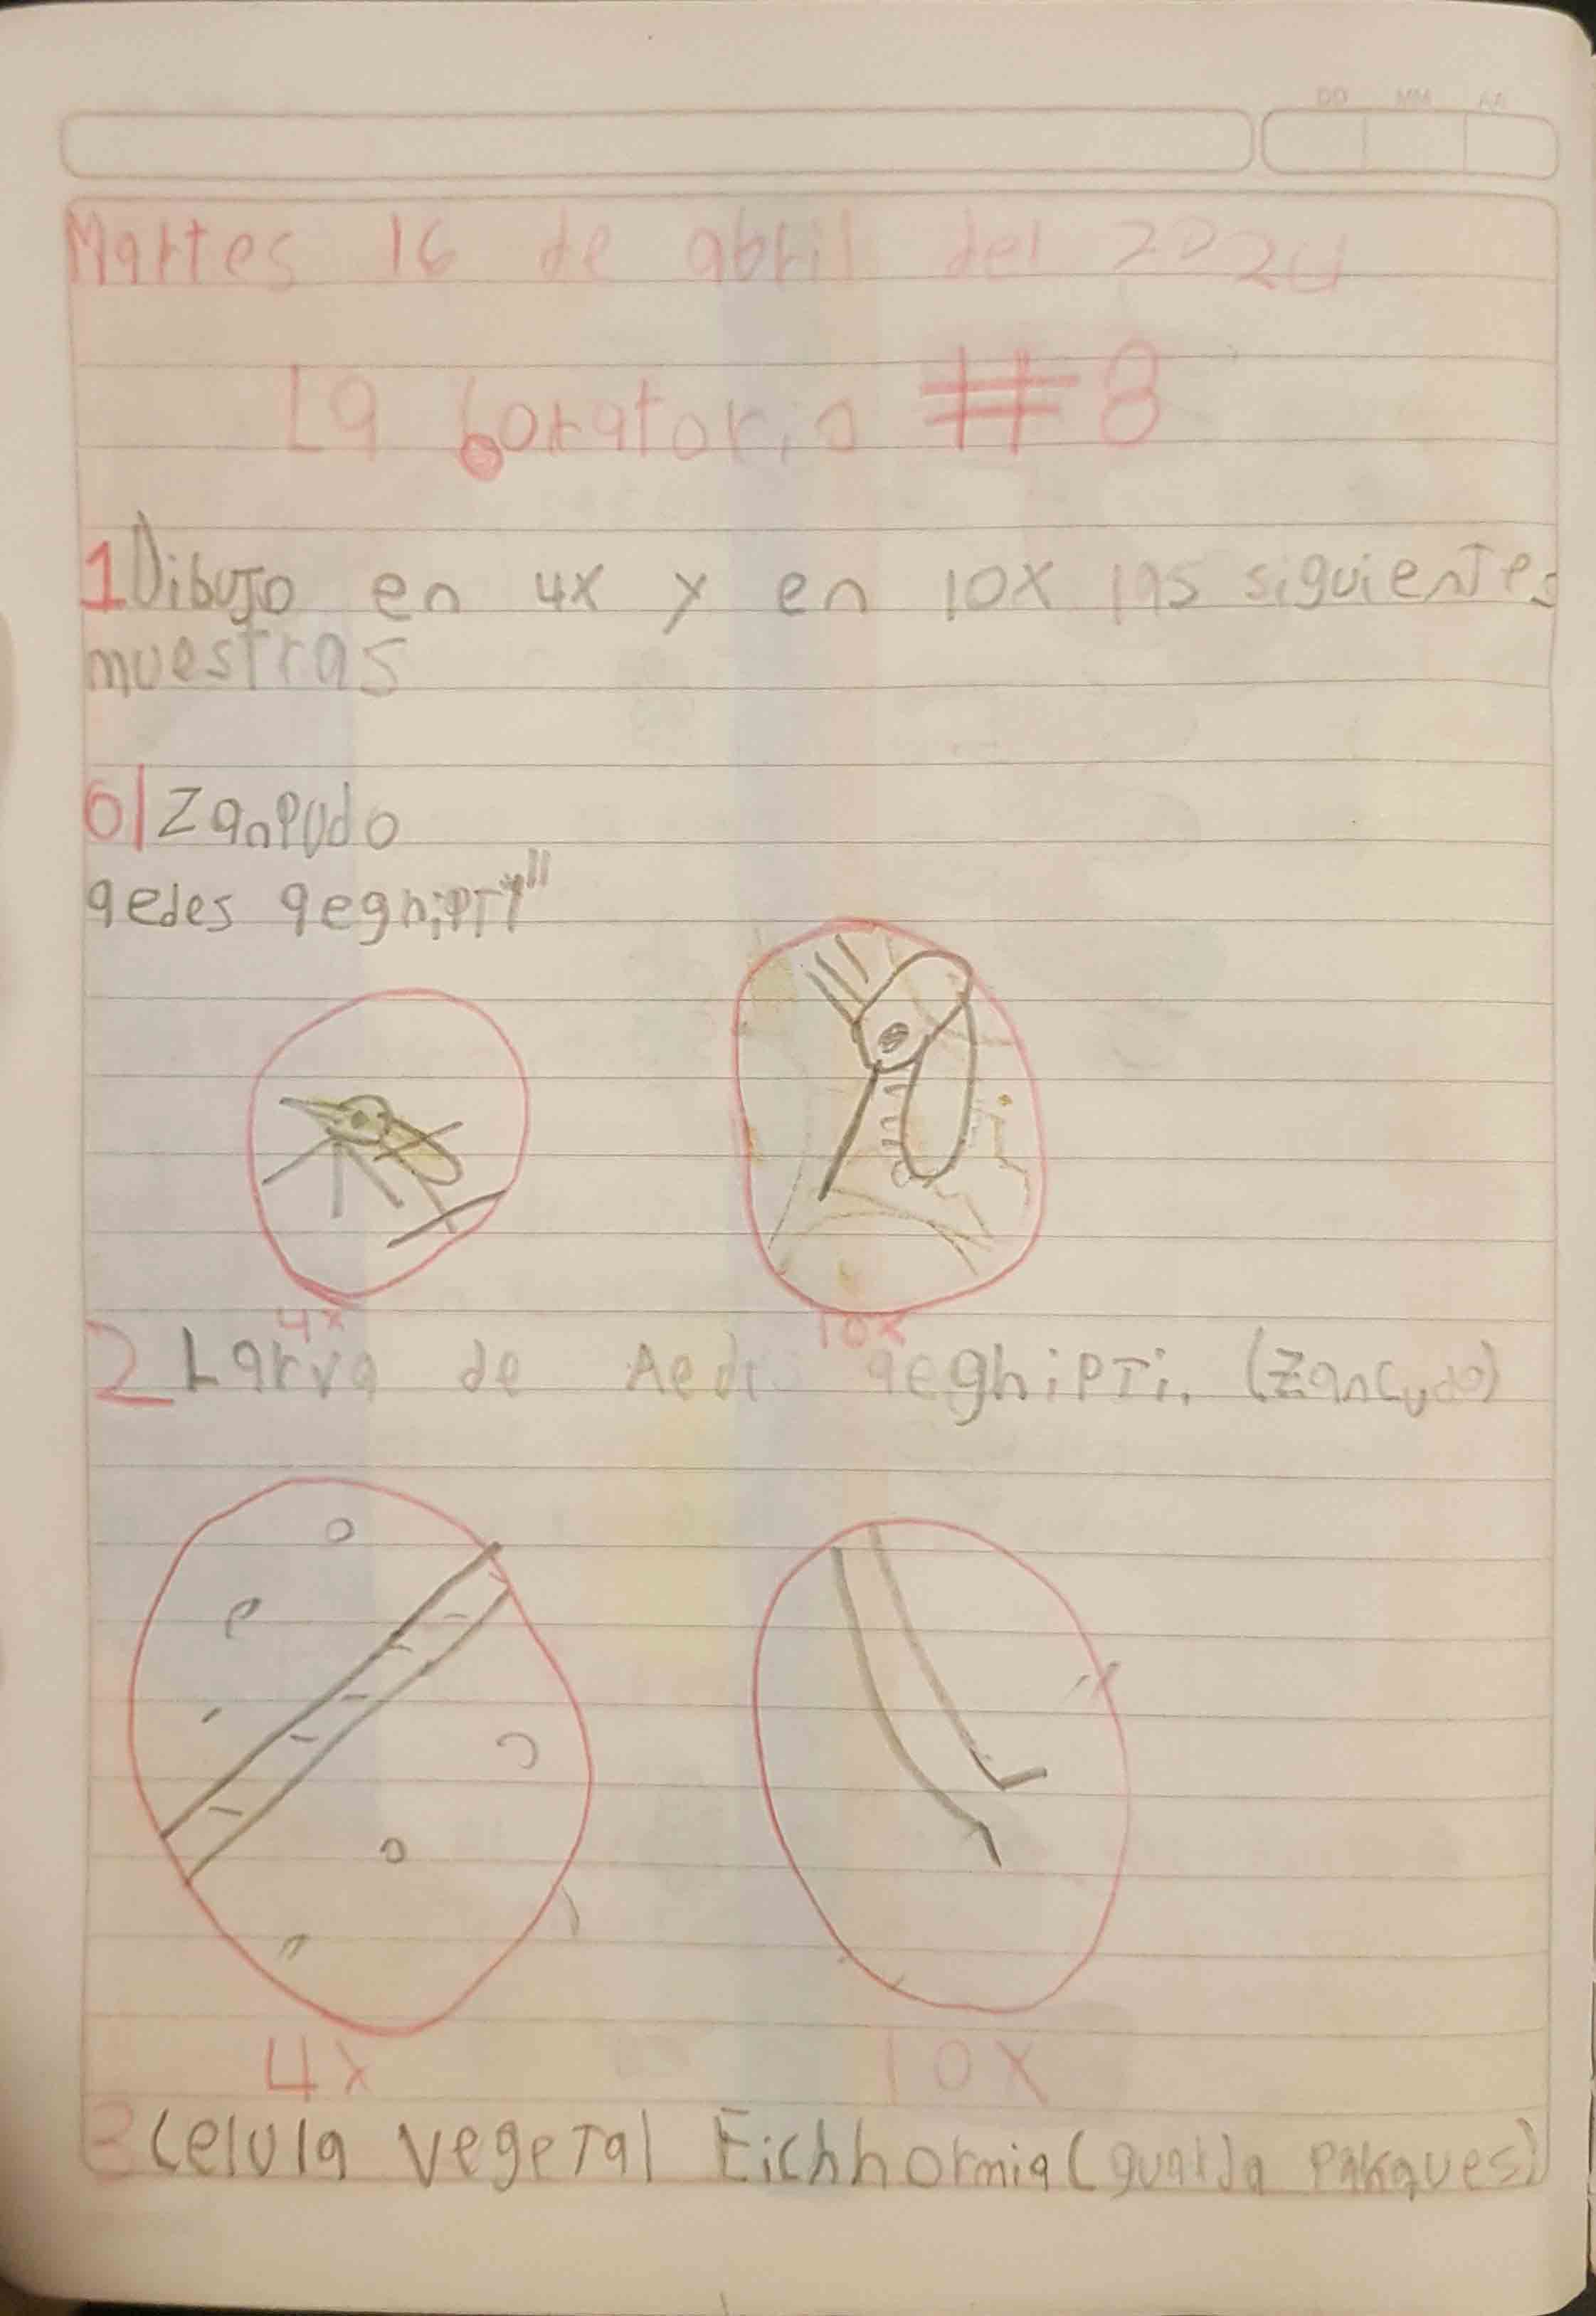 DD MM AA
Martes 16 de abril del 2024
Laboratorio #8
1 Dibujo en 4x y en 10x las siguientes
muestras
6| Zanpudo
aedes aeghipty"
4x 10x
2 Larva de Aedes aeghipti. (Zancudo)
4x 10x
3 Celula vegetal Eichhormia (guarda parques)